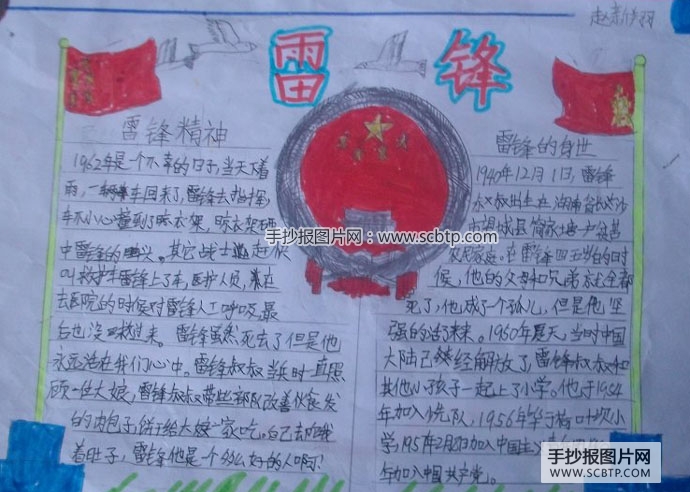 雷锋
雷锋精神
1962年是个不幸的日子,当天下着
雨,一辆车回来了,雷锋去指挥,
车不小心撞到了晾衣架,晾衣架砸
中雷锋的头。其它战士赶忙
叫救护车雷锋上了车,医护人员,在
去医院的时候对雷锋人工呼吸,最
后也没救过来。雷锋虽然死去了但是他
永远活在我们心中。雷锋叔叔当兵时一直照
顾一位大娘,雷锋叔叔带些部队改善伙食发
的肉包子,饼干给大娘家吃。自己去饿
着肚子,雷锋他是个多么好的人啊!
雷锋的身世
1940年12月1日,雷锋
叔叔出生在湖南省长沙
市望城县简家塘一户贫
农家庭。在雷锋四五岁的时
候,他的父母和兄弟全都
死了,他成了个孤儿,但是他坚
强的活了下来。1950年夏天,当时中国
大陆已经解放了,雷锋叔叔和
其他小孩子一起上了小学。他于1954
年加入少先队,1956年毕于
小
学,1957年2月8日加入中国
年加入中国共产党。
手抄报图片网:www.scbtp.com
手抄报图片网
WWW.SCBTP.COM